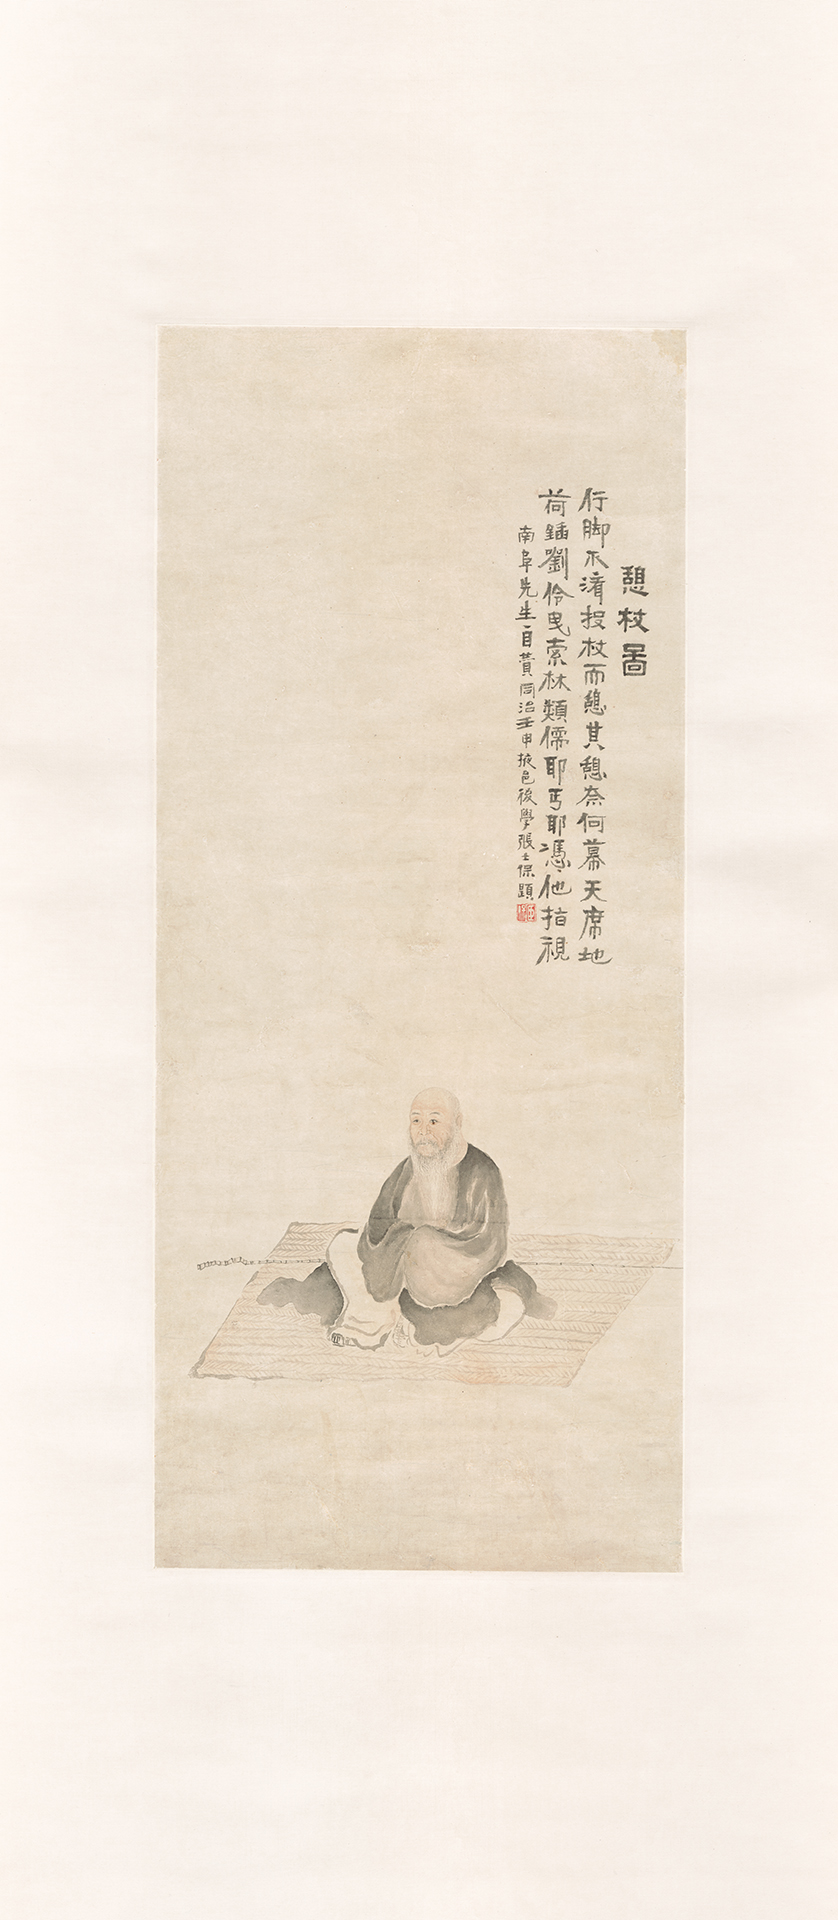 憩杖圖
行脚不濳投杖而憩其憩奈何幕天席地
荷鍤劉伶曳索林類儒耶丐耶憑他指視
南阜先生自贊同治壬申掖邑後學張士保題